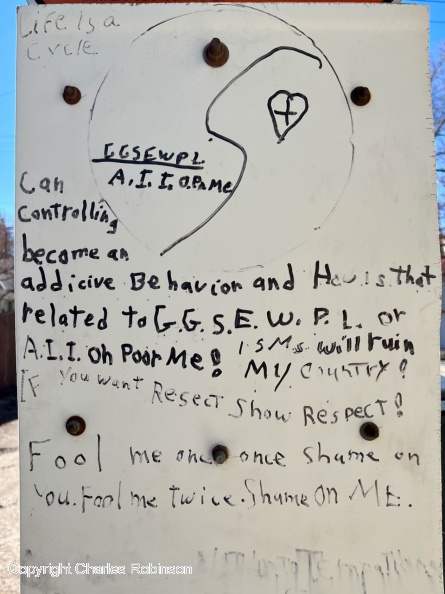 Life is a
Cycle
G.G.S.E.W.P.L.
A.I.I.O.P.Me
Can
Controlling
become an
addicive Behavior and How is that
related to G.G.S.E.W.P.L. or
A.I.I. Oh Poor Me! ISMs will ruin
My Country!
If You want Resect Show Respect!
Fool me once once Shame on
You. Fool me Twice. Shame On ME.
Copyright Charles Robinson